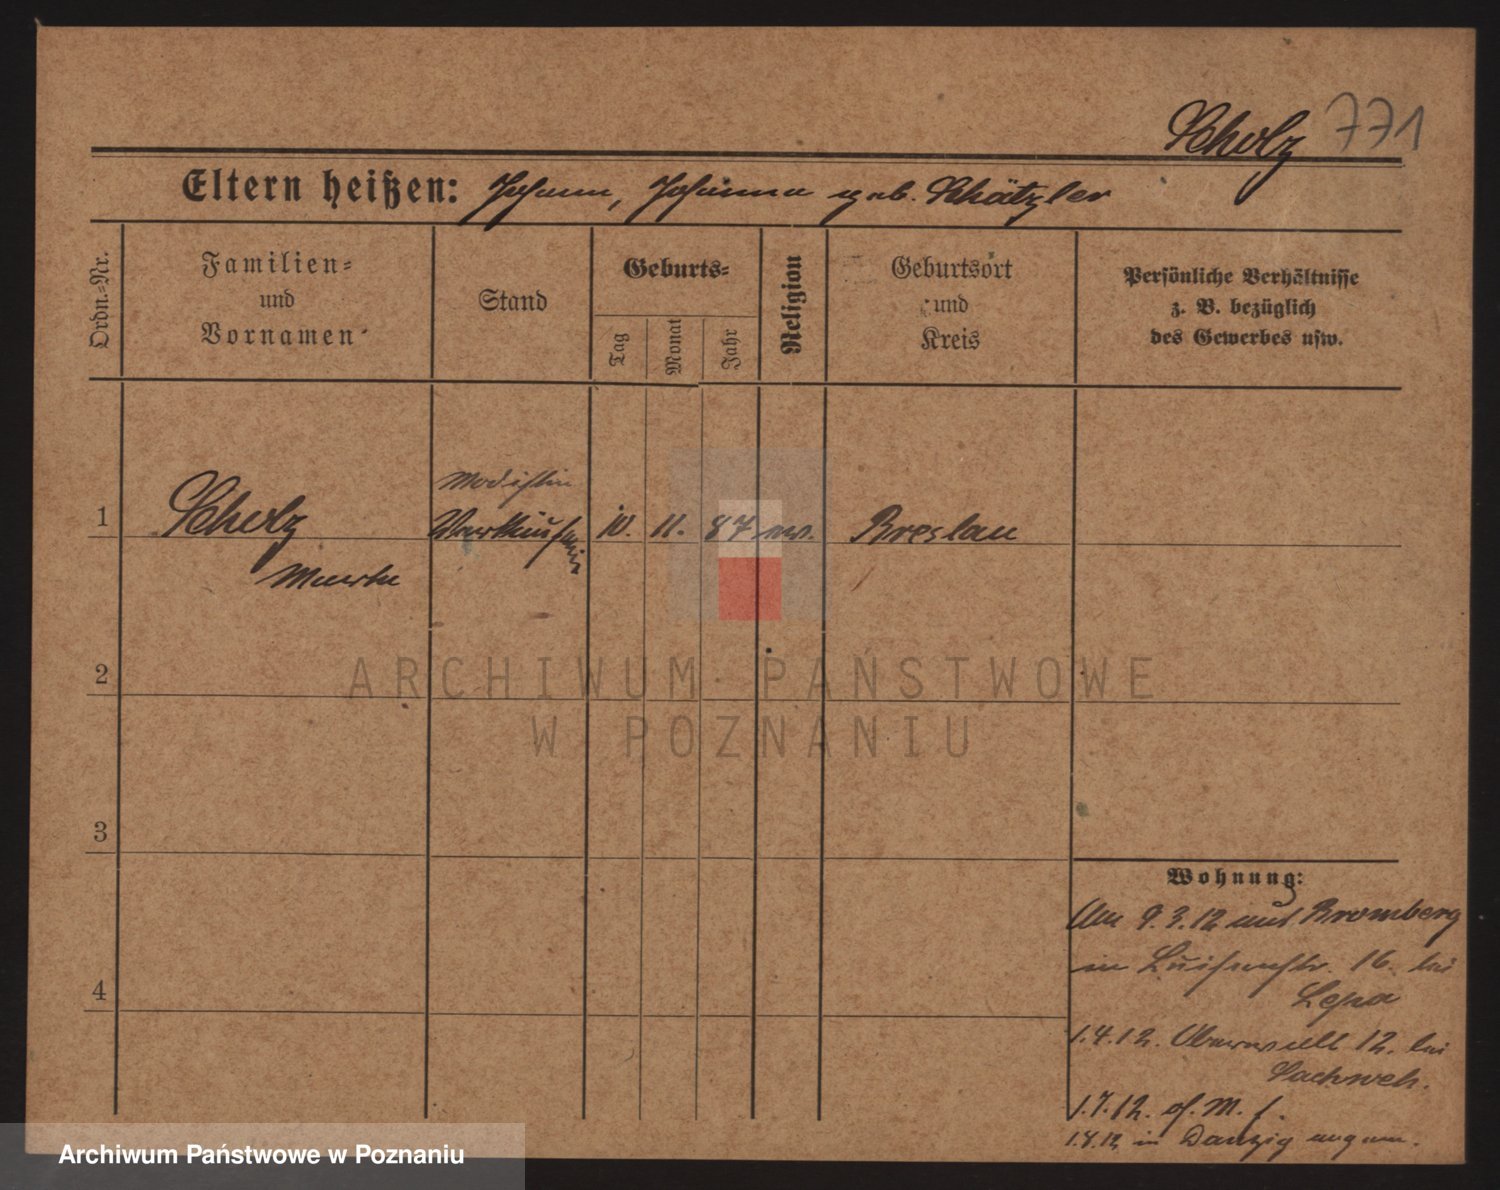 Scholz 771
Eltern heißen: Johann, Johanna geb. Schätzler
Ordn.-Nr.
Familien-
und
Vornamen
Stand
Geburts-
Tag
Monat
Jahr
Religion
Geburtsort
und
Kreis
Persönliche Verhältnisse
z. B. bezüglich
des Gewerbes usw.
Modistin
1 Scholz Verkäuferin 10. 11. 87 ev. Breslau
Martha
2
ARCHIWUM PAŃSTWOWE
W POZNANIU
3
4
Wohnung:
Am 9.3.12 aus Bromberg
in Luisenstr. 16. bei
1.4.12. 12. bei
Sachweh.
1.7.12. of. M. f.
1.8.12 in Danzig angem.
Archiwum Państwowe w Poznaniu